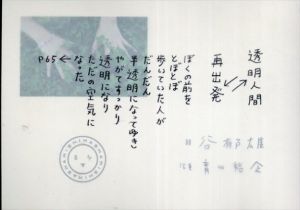 透明人間
再出発
ぼくの前を
とぼとぼ
歩いていた人が
だんだん
半透明になってゆき
やがてすっかり
透明になり
ただの空気に
なった
P65
谷